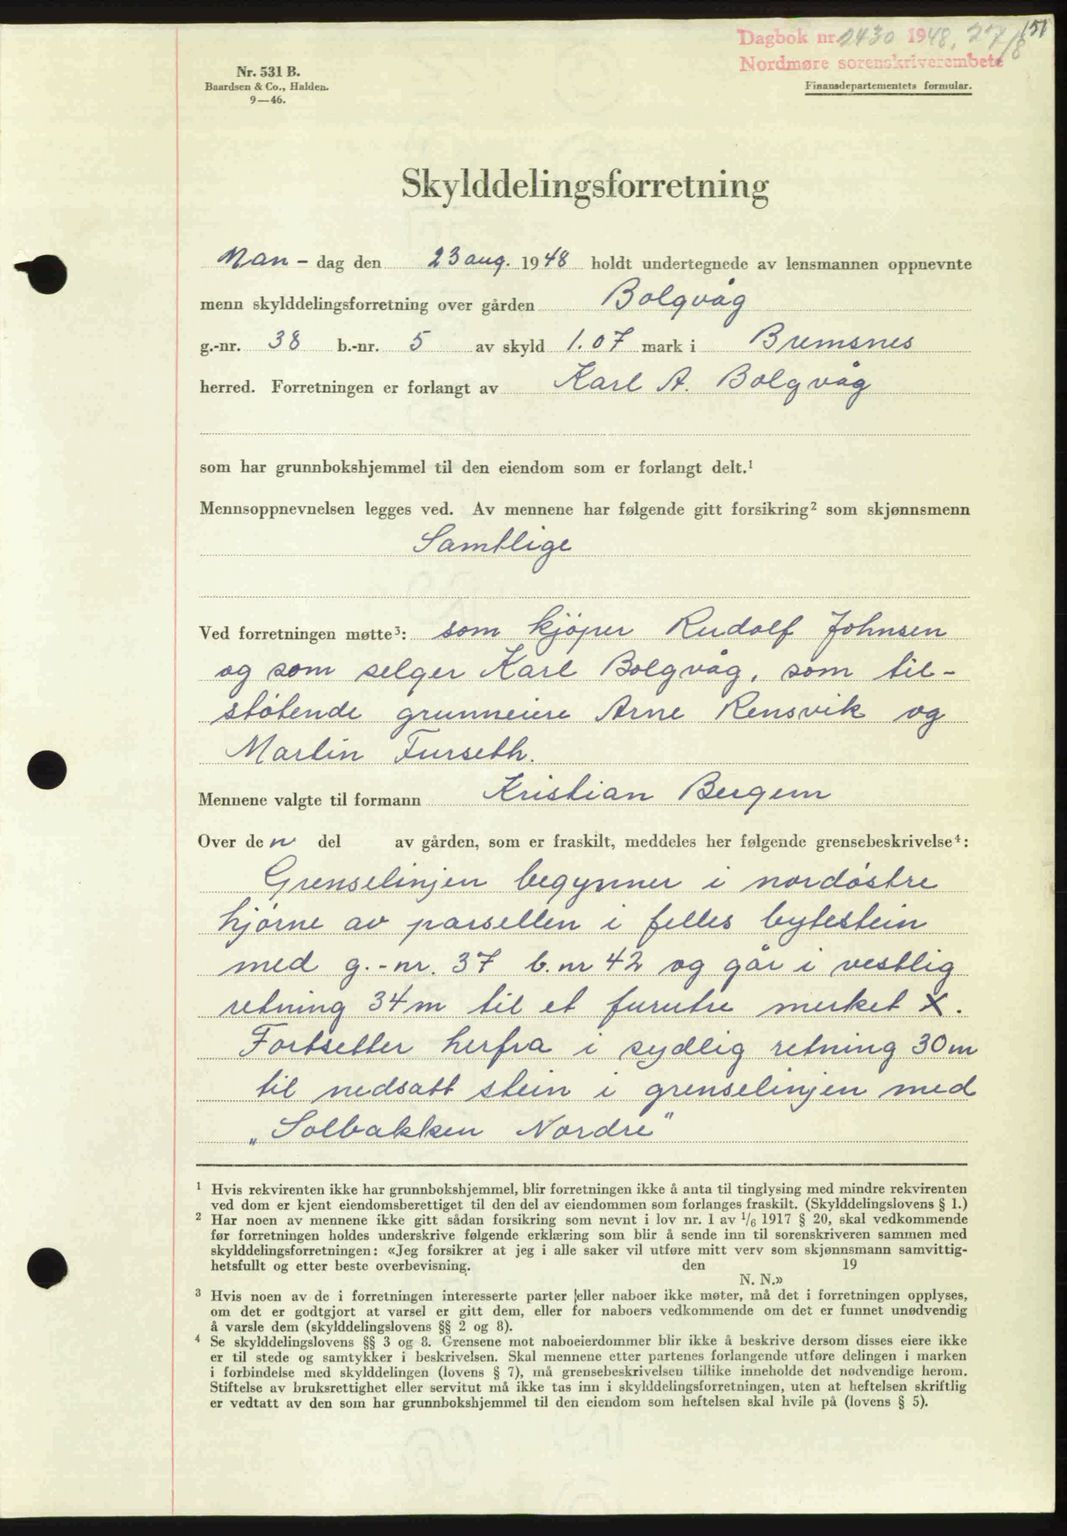 151
Dagbok nr. 2430 1948. 27/8
Nordmøre sorenskriverembete
Nr. 531 B.
Baardsen & Co., Halden.
9—46.
Finansdepartementets formular.
Skylddelingsforretning
Man - dag den 23 aug. 1948 holdt undertegnede av lensmannen oppnevnte
menn skylddelingsforretning over gården Bolgvåg
g.-nr. 38 b.-nr. 5 av skyld 1.07 mark i Bremsnes
herred. Forretningen er forlangt av Karl A. Bolgvåg
som har grunnbokshjemmel til den eiendom som er forlangt delt.¹
Mennsoppnevnelsen legges ved. Av mennene har følgende gitt forsikring² som skjønnsmenn
Samtlige
Ved forretningen møtte³: som kjöper Rudolf Johnsen
og som selger Karl Bolgvåg, som til-
stötende grunneiere Arne Rensvik og
Martin Furseth.
Mennene valgte til formann Kristian Bergem
Over den del av gården, som er fraskilt, meddeles her følgende grensebeskrivelse⁴:
Grenselinjen begynner i nordöstre
hjörne av parsellen i felles bytestein
med g.-nr. 37 b.nr 42 og går i vestlig
retning 34 m til et furutre merket X.
Fortsetter herfra i sydlig retning 30 m
til nedsatt stein i grenselinjen med
„Solbakken Nordre"
¹ Hvis rekvirenten ikke har grunnbokshjemmel, blir forretningen ikke å anta til tinglysing med mindre rekvirenten
ved dom er kjent eiendomsberettiget til den del av eiendommen som forlanges fraskilt. (Skylddelingslovens § 1.)
² Har noen av mennene ikke gitt sådan forsikring som nevnt i lov nr. 1 av 1/6 1917 § 20, skal vedkommende
før forretningen holdes underskrive følgende erklæring som blir å sende inn til sorenskriveren sammen med
skylddelingsforretningen: «Jeg forsikrer at jeg i alle saker vil utføre mitt verv som skjønnsmann samvittig-
hetsfullt og etter beste overbevisning. den 19
N. N.»
³ Hvis noen av de i forretningen interesserte parter eller naboer ikke møter, må det i forretningen opplyses,
om det er godtgjort at varsel er gitt dem, eller for naboers vedkommende om det er funnet unødvendig
å varsle dem (skylddelingslovens §§ 2 og 8).
⁴ Se skylddelingslovens §§ 3 og 8. Grensene mot naboeierdommer blir ikke å beskrive dersom disses eiere ikke
er til stede og samtykker i beskrivelsen. Skal mennene etter partenes forlangende utføre delingen i marken
i forbindelse med skylddelingen (lovens § 7), må grensebeskrivelsen tillike inneholde det nødvendige herom.
Stiftelse av bruksrettighet eller servitut må ikke tas inn i skylddelingsforretningen, uten at heftelsen skriftlig
er vedtatt av den som har grunnbokshjemmel til den eiendom som heftelsen skal hvile på (lovens § 5).